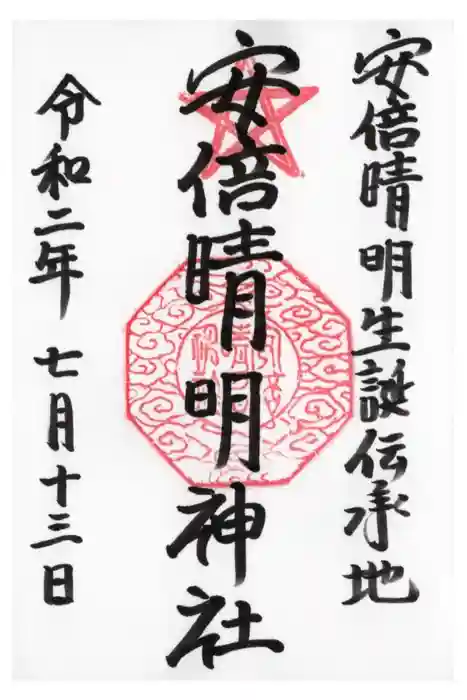 安倍晴明生誕伝承地
安倍晴明神社
令和二年七月十三日